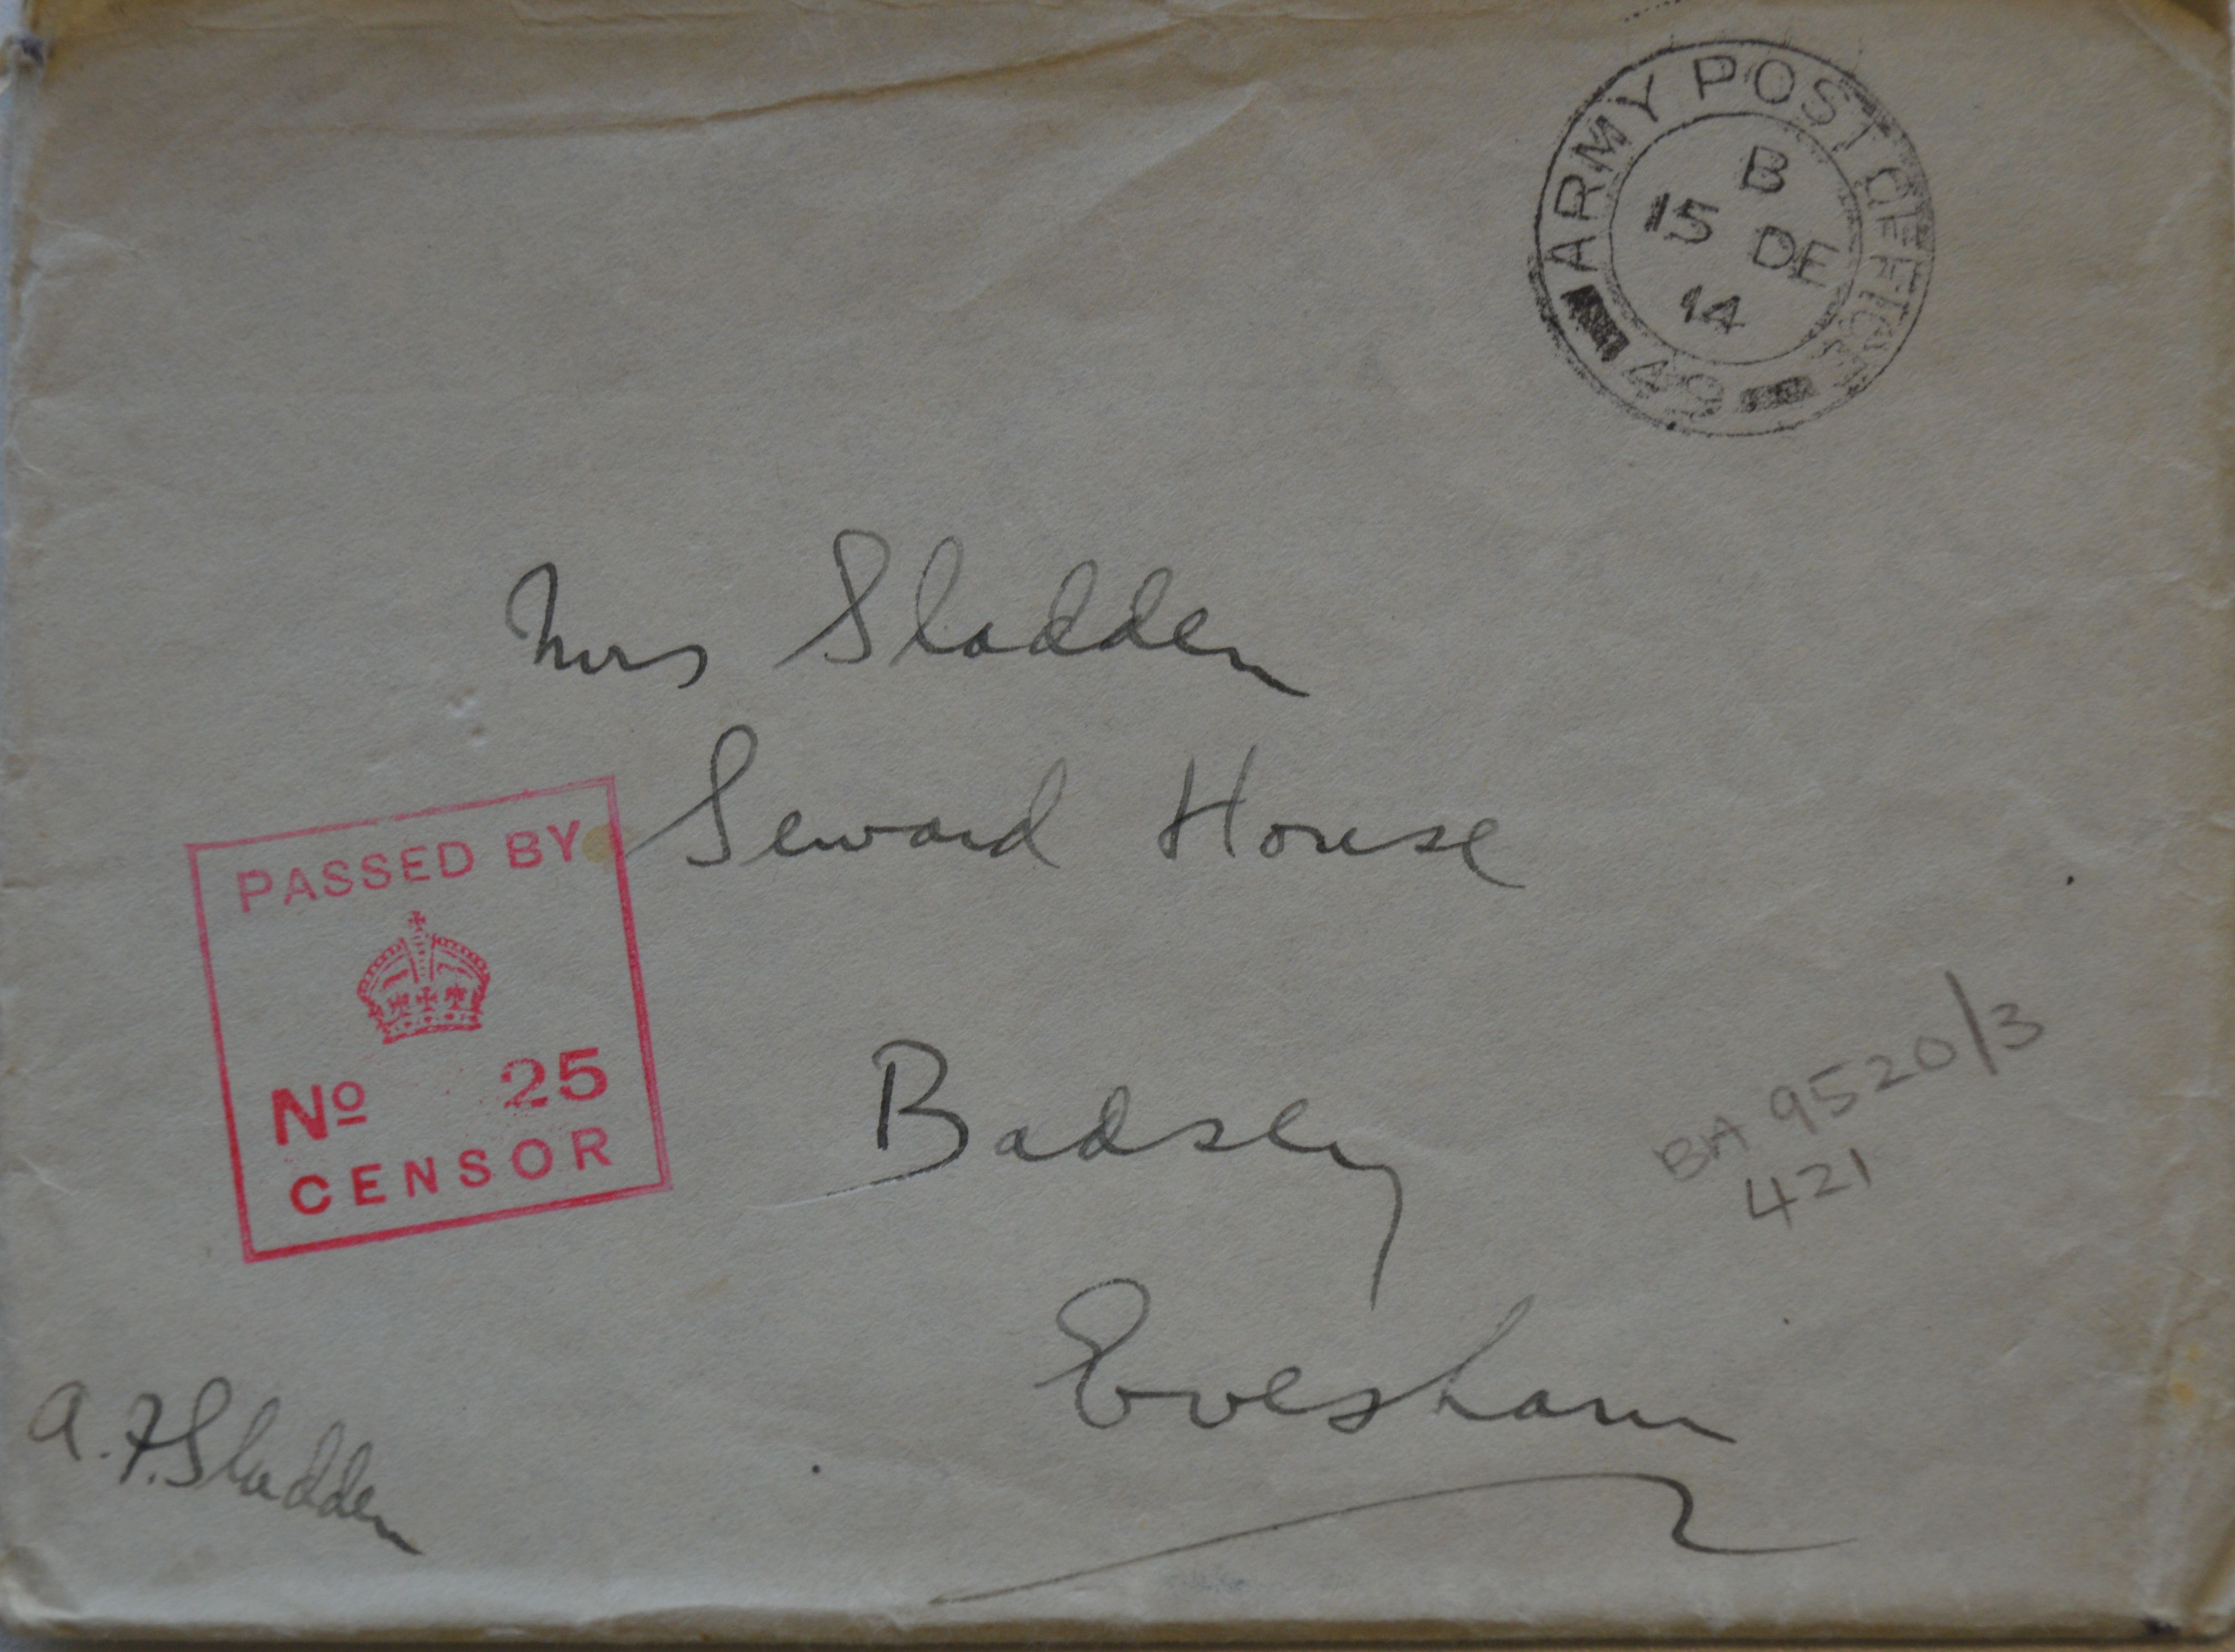 ARMY POST OFFICE
B
15 DE
14
49
Mrs Sladden
Seward House
Badsey
Evesham
PASSED BY
No 25
CENSOR
BA 9520/3
421
A.F. Sladden